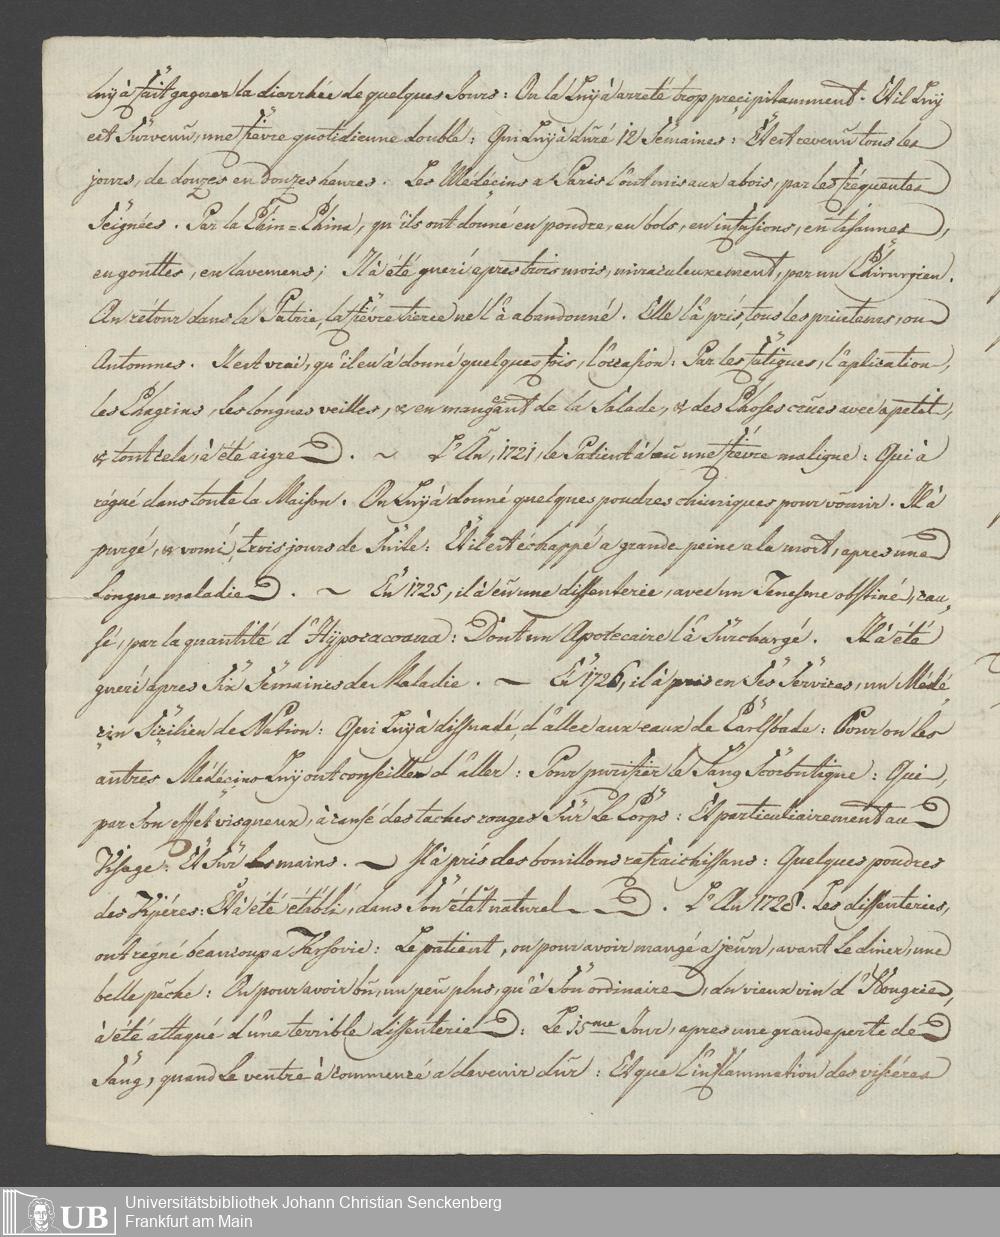 Luÿ à fait gagner la diarrhée de quelques Jours: On la Luÿ à arreté trop precipitamment. Et il Luÿ
est Survenü, une fiévre quotidienne double: Qui Luÿ à duré 12 Semaines: Et est revenü tous les
jours, de douzes en douzes heures. Les Medécins a Paris l'ont mis aux abois, par les fréquentes
Seignées. Par la Chin=China, qu'ils ont donné en poudre, en bols, en infusions, en tisannes,
en gouttes, en lavemens; Il à été gueri apres trois mois, miraculeuxement, par un Chirurgien.
Au rétour dans la Patrie, la fiévre tierce ne l'à abandonné. Elle l'à pris, tous les printems, ou
Automnes. Il est vrai, qu'il en à donné quelques fois, l'occasion: Par les fatigues, l'aplication,
les Chagrins, les longues veilles, & en mangeant de la Salade, & des Choses crües avec apetit,
& tout cela, à été aigre. ~ L'An, 1721, le Patient à eü une fiévre maligne: Qui à
régné dans toute la Maison. On Luÿ à donné quelques poudres chimiques pour vomir. Il à
purgé, & vomi, trois jours de Suite: Et il est échappé a grande peine a la mort, apres une
Longue maladie. ~ En 1725, il à eü une dissenterie, avec un Tenesme obstiné, cau=
sé, par la quantité d'Hÿpocacoana: Dont un Apotecaire l'à Surchargé. Il à été
gueri apres Six Semaines de Maladie. ~ En 1726, il à pris en Ses Services, un Médé=
cin Sicilien de Nation: Qui Luÿ à dissuadé, d'aller aux eaux de Carlsbade: Pour on les
autres Médécins Luÿ ont conseillé d'aller: Pour purifier le Sang Scorbutique: Qui,
par Son effet visqueux, à causé des taches rouges Sur Le Corps: Et particuliairement au
Visage: Et Sur les mains. ~ Il à pris des bouillons rafraichissans: Quelques poudres
des Vipéres: Et à été rétabli, dans Son état naturel. L'An 1728. Les dissenteries,
ont régné beaucoup a Varsovie: Le patient, ou pour avoir mangé a jeün, avant Le diner, une
belle pêche: Ou pour avoir bü, un peü plus, qu'à Son ordinaire, du vieux vin d'Hongrie,
à été attaqué d'une terrible dissenterie: Le 15me Jour, apres une grande perte de
Sang, quand Le ventre à commencé a devenir dur: Et que l'inflammation des viscéres
Universitätsbibliothek Johann Christian Senckenberg
Frankfurt am Main
UB